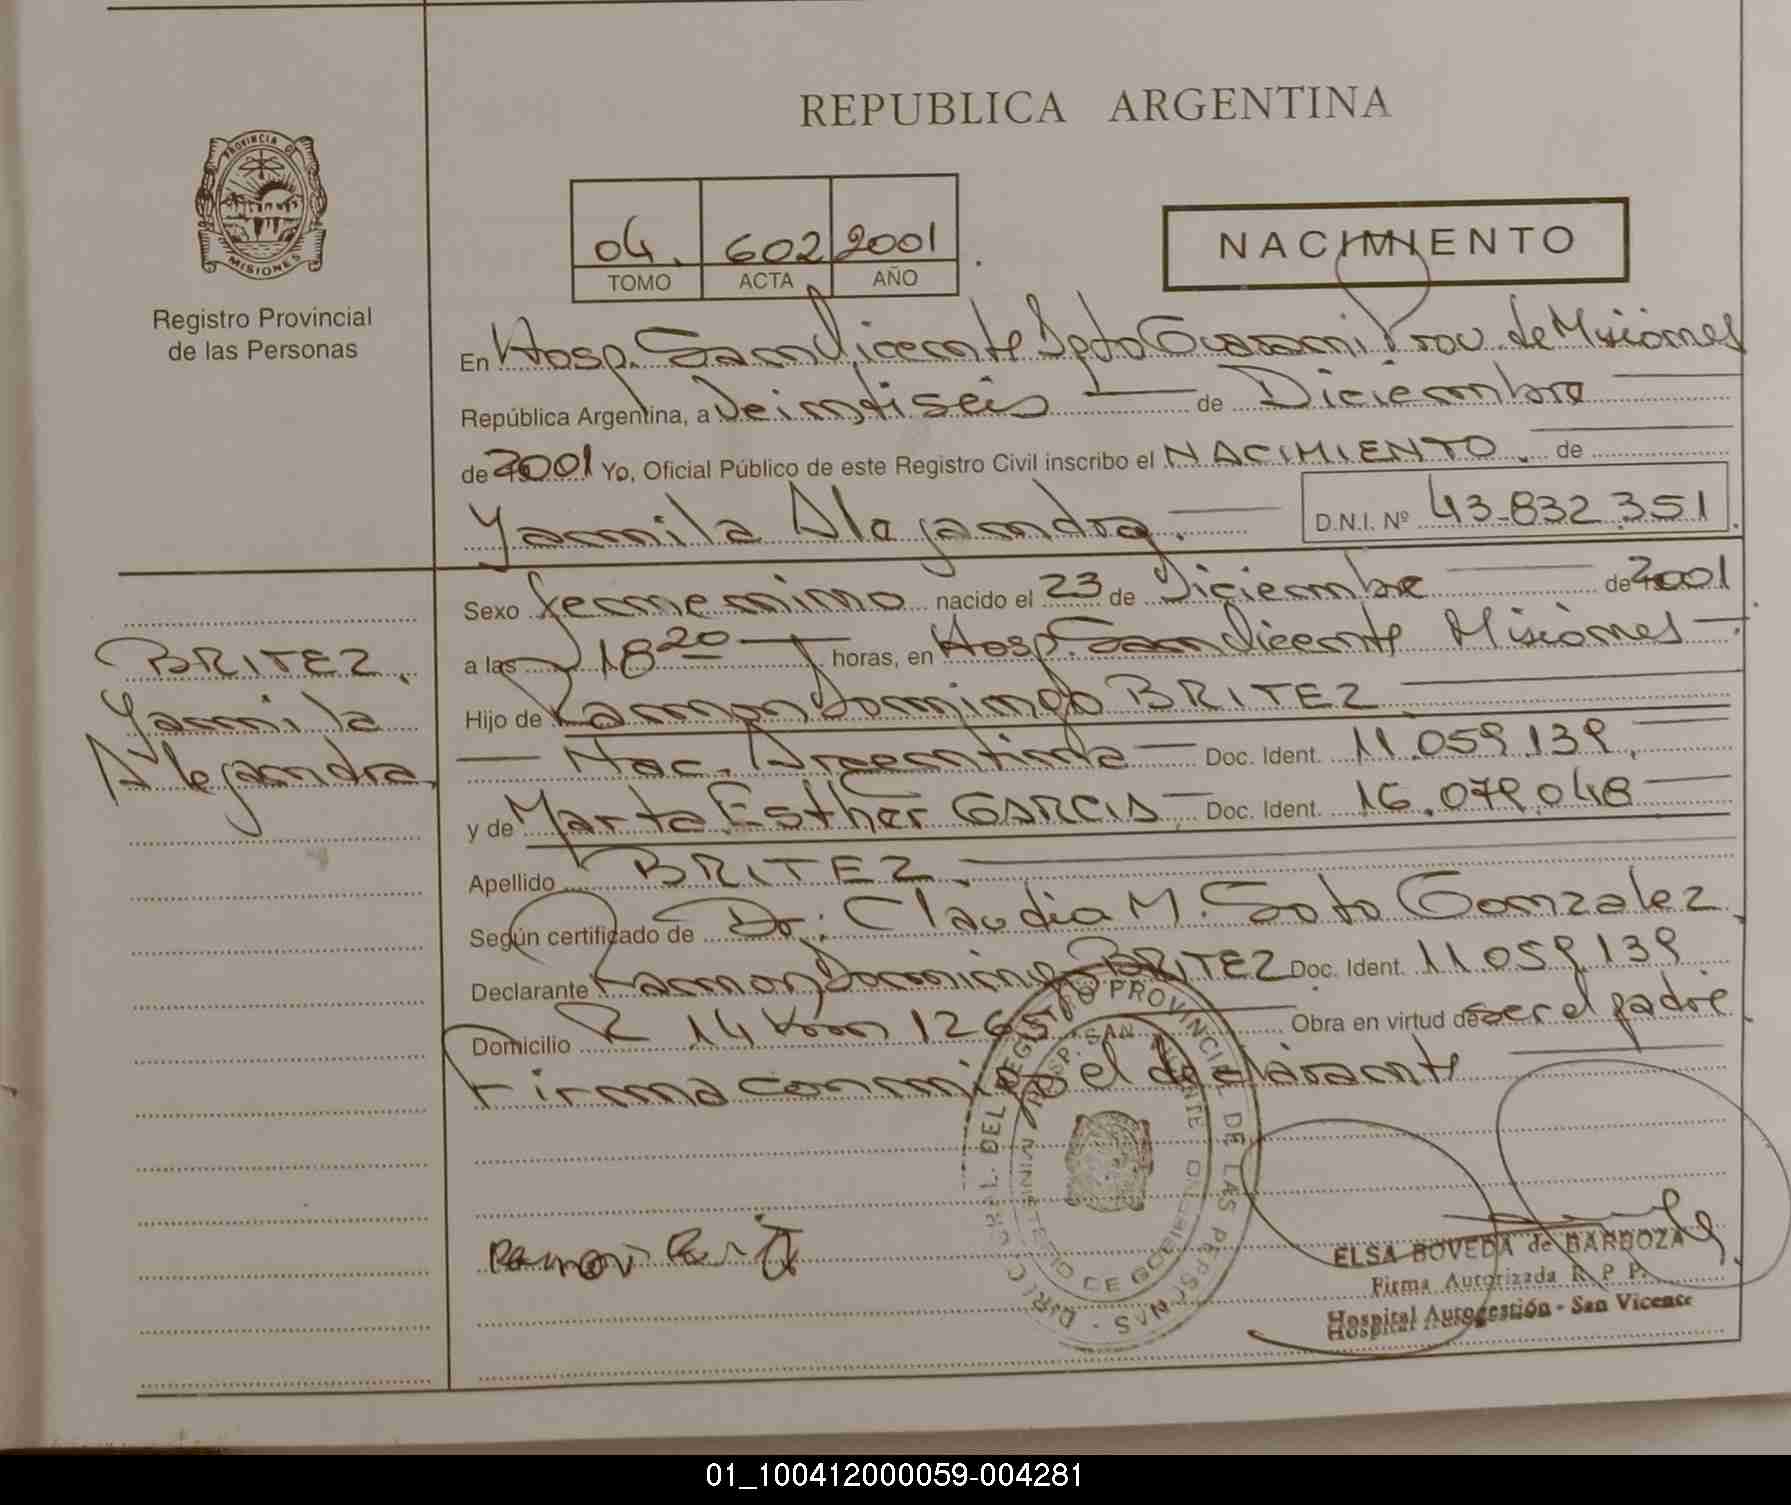 REPUBLICA ARGENTINA
PROVINCIA DE
MISIONES
Registro Provincial
de las Personas
04. 602 2001
TOMO ACTA AÑO
NACIMIENTO
En Hosp. San Vicente Dpto Guarani Prov. de Misiones
República Argentina, a Veintiseis de Diciembre
de 2001 Yo, Oficial Público de este Registro Civil inscribo el NACIMIENTO. de
Yamila Alejandra. D.N.I. Nº 43.832.351
Sexo femenino nacido el 23 de Diciembre de 2001
a las 18 20 horas, en Hosp. San Vicente Misiones
Hijo de Ramon Domingo BRITEZ
Nac. Argentina Doc. Ident. 11.059.139.
y de Marta Esther GARCIA Doc. Ident. 16.079.048
Apellido BRITEZ.
Según certificado de Dr: Claudia M. Soto Gonzalez
Declarante Ramon Domingo BRITEZ Doc. Ident. 11.059.139
Domicilio R 14 km 1265 Obra en virtud de ser el padre
Firma conmigo el declarante
BRITEZ.
Yamila
Alejandra
DIRECC. GRAL. DEL REGISTRO PROVINCIAL DE LAS PERSONAS
HOSP. SAN VICENTE
MINISTERIO DE GOBIERNO
Ramon Brit
ELSA BOVEDA de BARBOZA
Firma Autorizada R. P. P.
Hospital Autogestión - San Vicente
01_100412000059-004281